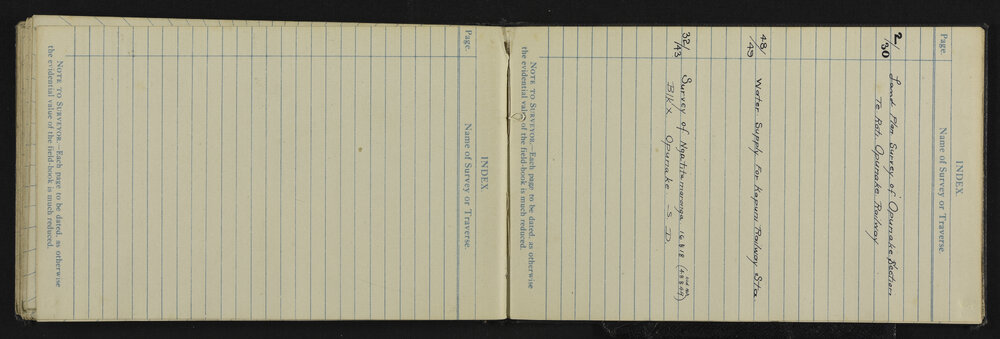 INDEX.
Page.
Name of Survey or Traverse.
2/30
Land Plan Survey of Opunake Section
Te Roti Opunake Railway
48/49
Water Supply For Kapuni Railway Sta
32/43
Survey of Ngatitamarongo 16 & 18
Blk X Opunake S. D.
NOTE TO SURVEYOR.—Each page to be dated, as otherwise
the evidential value of the field-book is much reduced.
INDEX
Page.
Name of Survey or Traverse.
NOTE TO SURVEYOR.—Each page to be dated, as otherwise
the evidential value of the field-book is much reduced.